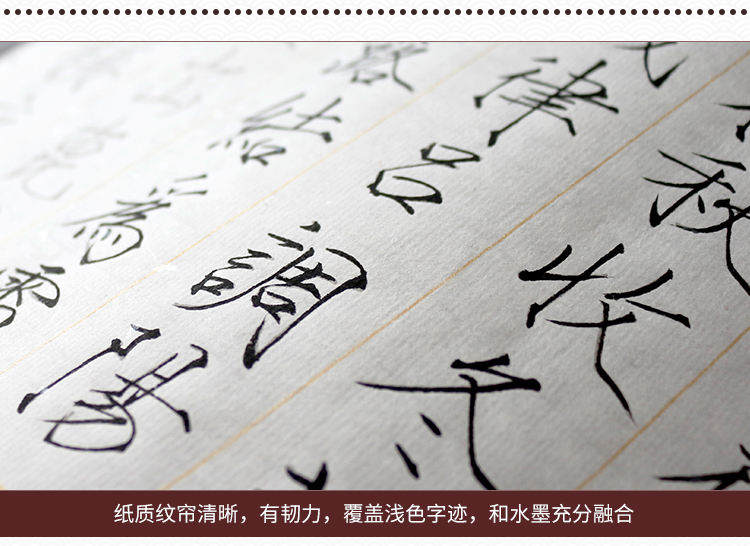 秋收冬
律呂調陽
結為霜
纸质纹帘清晰，有韧力，覆盖浅色字迹，和水墨充分融合